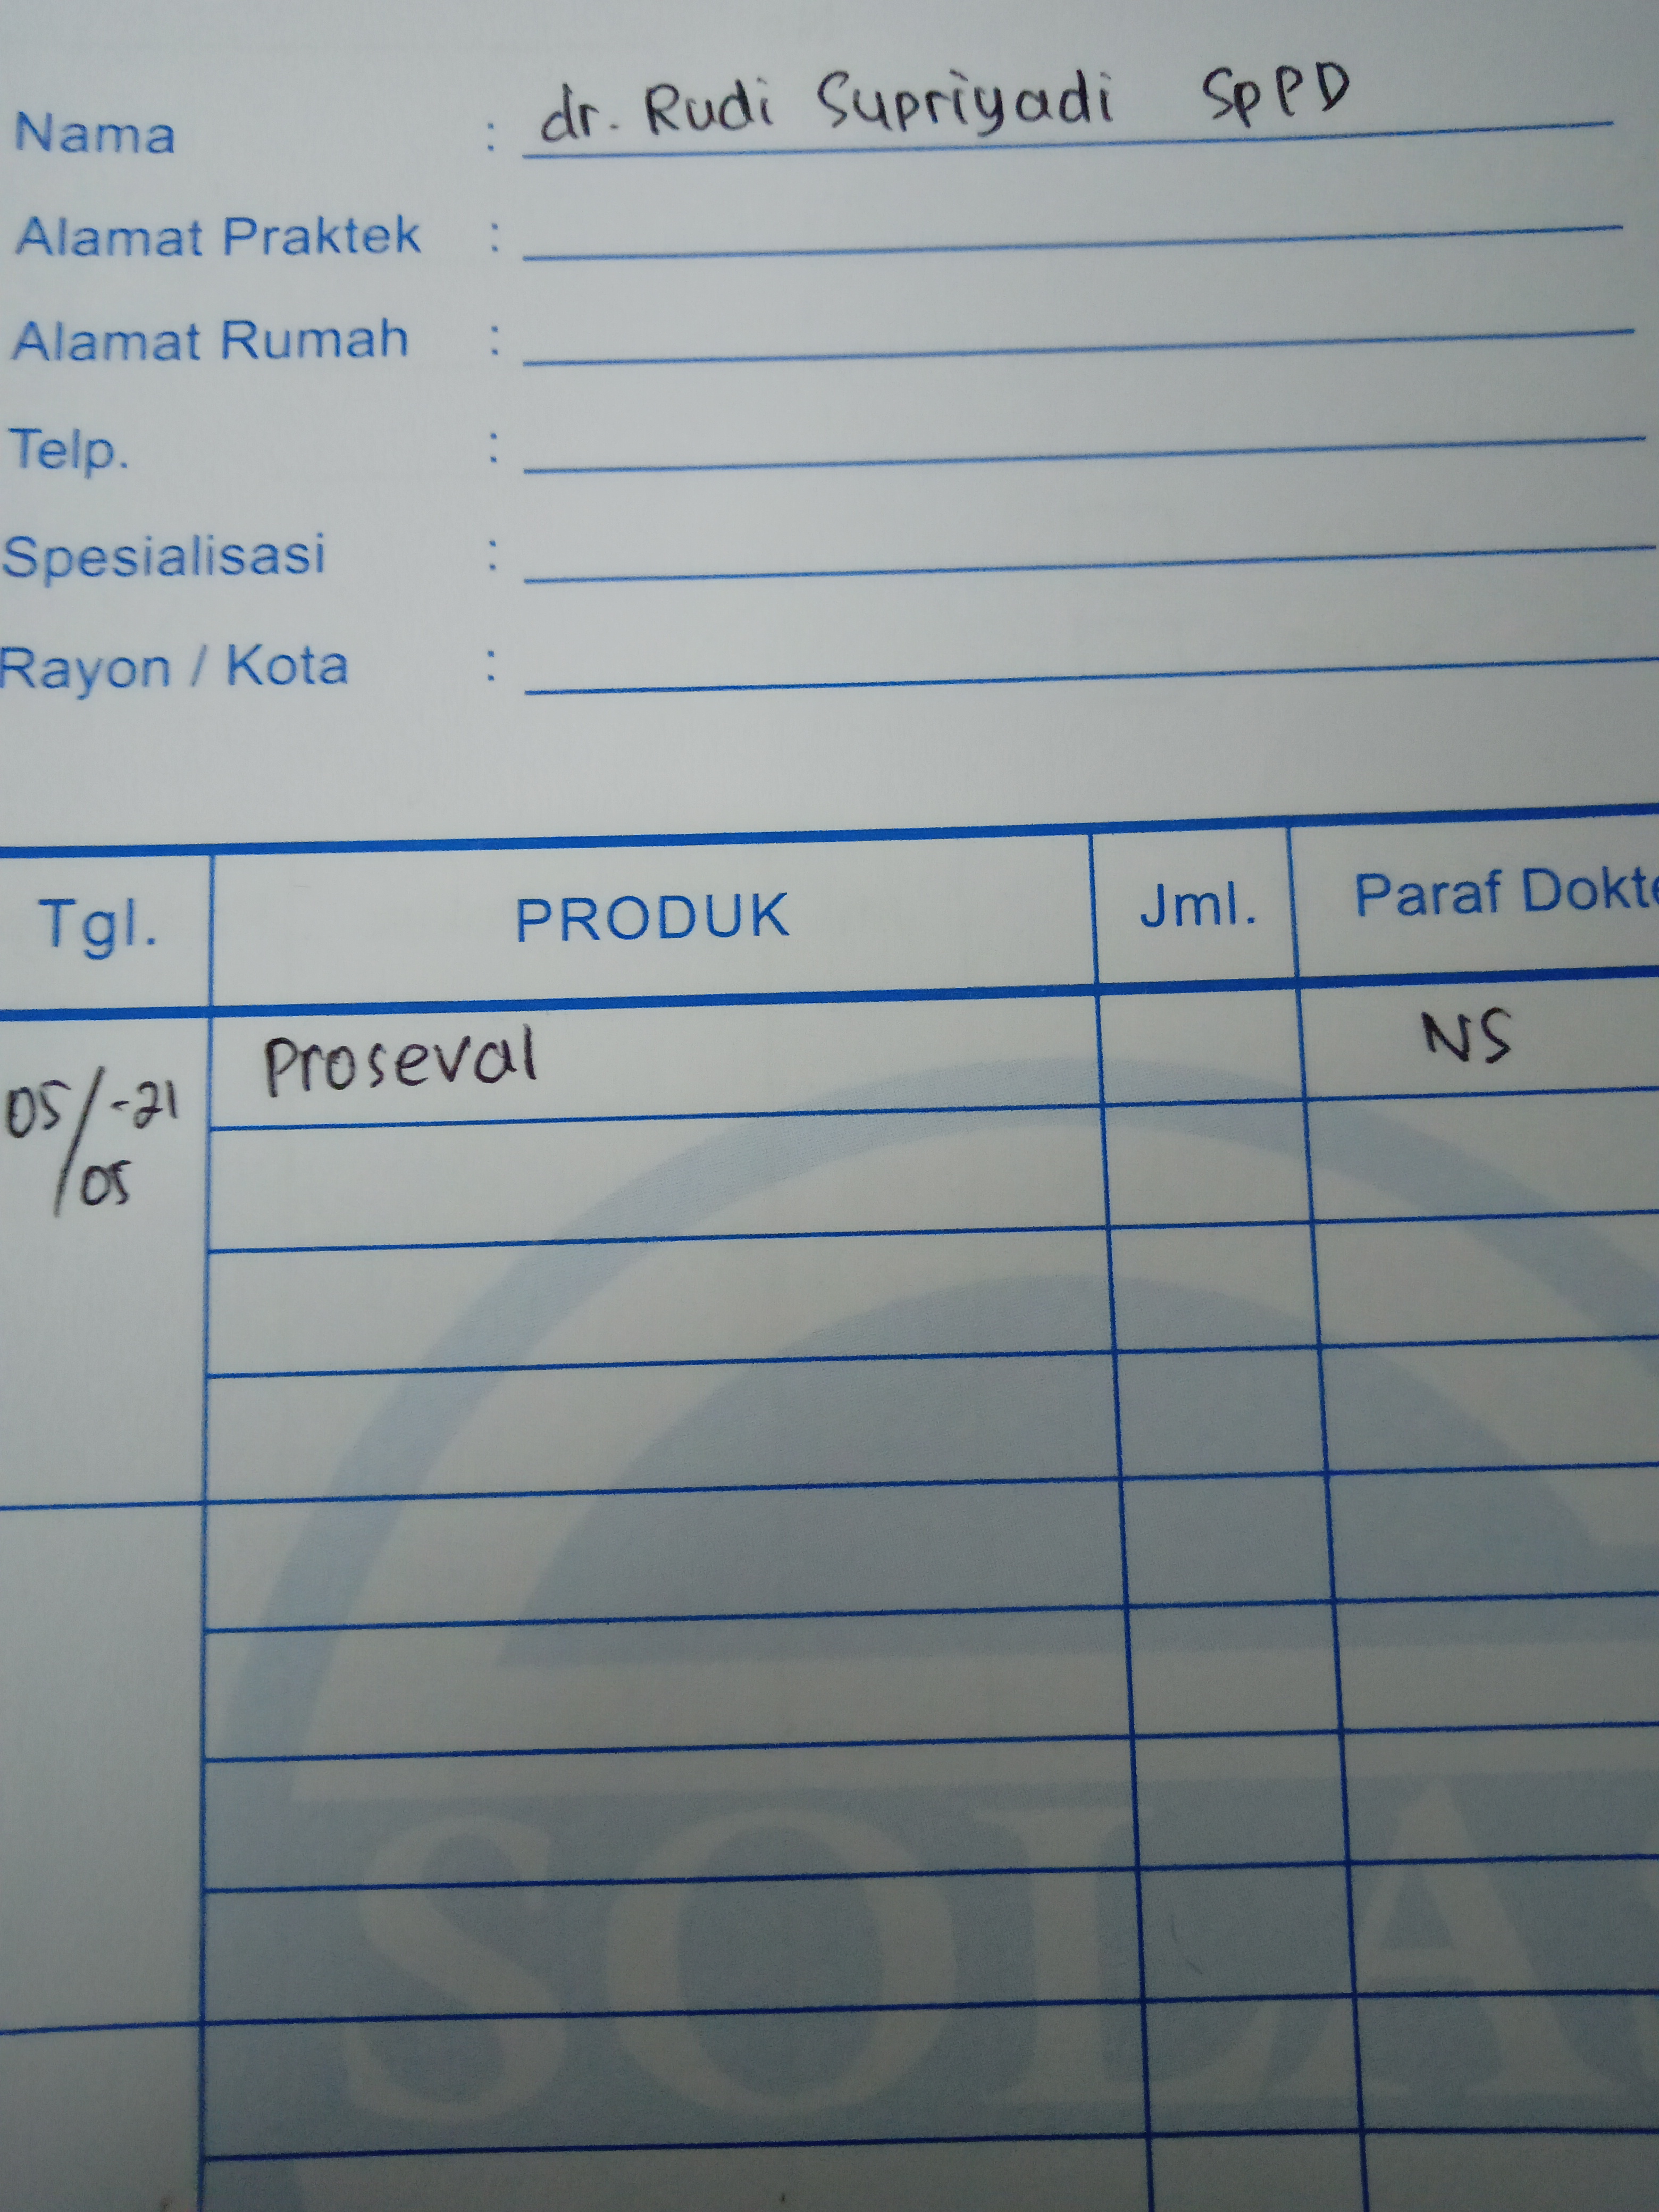 Nama : dr. Rudi Supriyadi SpPD
Alamat Praktek :
Alamat Rumah :
Telp. :
Spesialisasi :
Rayon / Kota :
Tgl. PRODUK Jml. Paraf Dokte
05/-21 Proseval NS
/05
SOLA